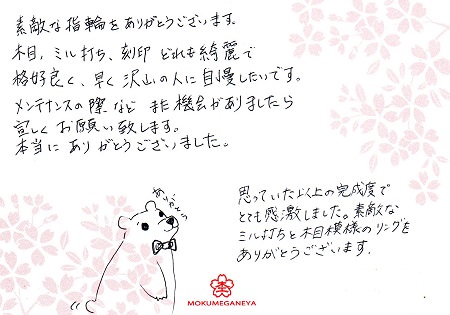 素敵な指輪をありがとうございます。
木目、ミル打ち、刻印 どれも綺麗で
格好良く、早く沢山の人に自慢したいです。
メンテナンスの際など また機会がありましたら
宜しくお願い致します。
本当にありがとうございました。
思っていた以上の完成度で
とても感激しました。素敵な
ミル打ちと木目模様のリングを
ありがとうございます.
MOKUMEGANEYA